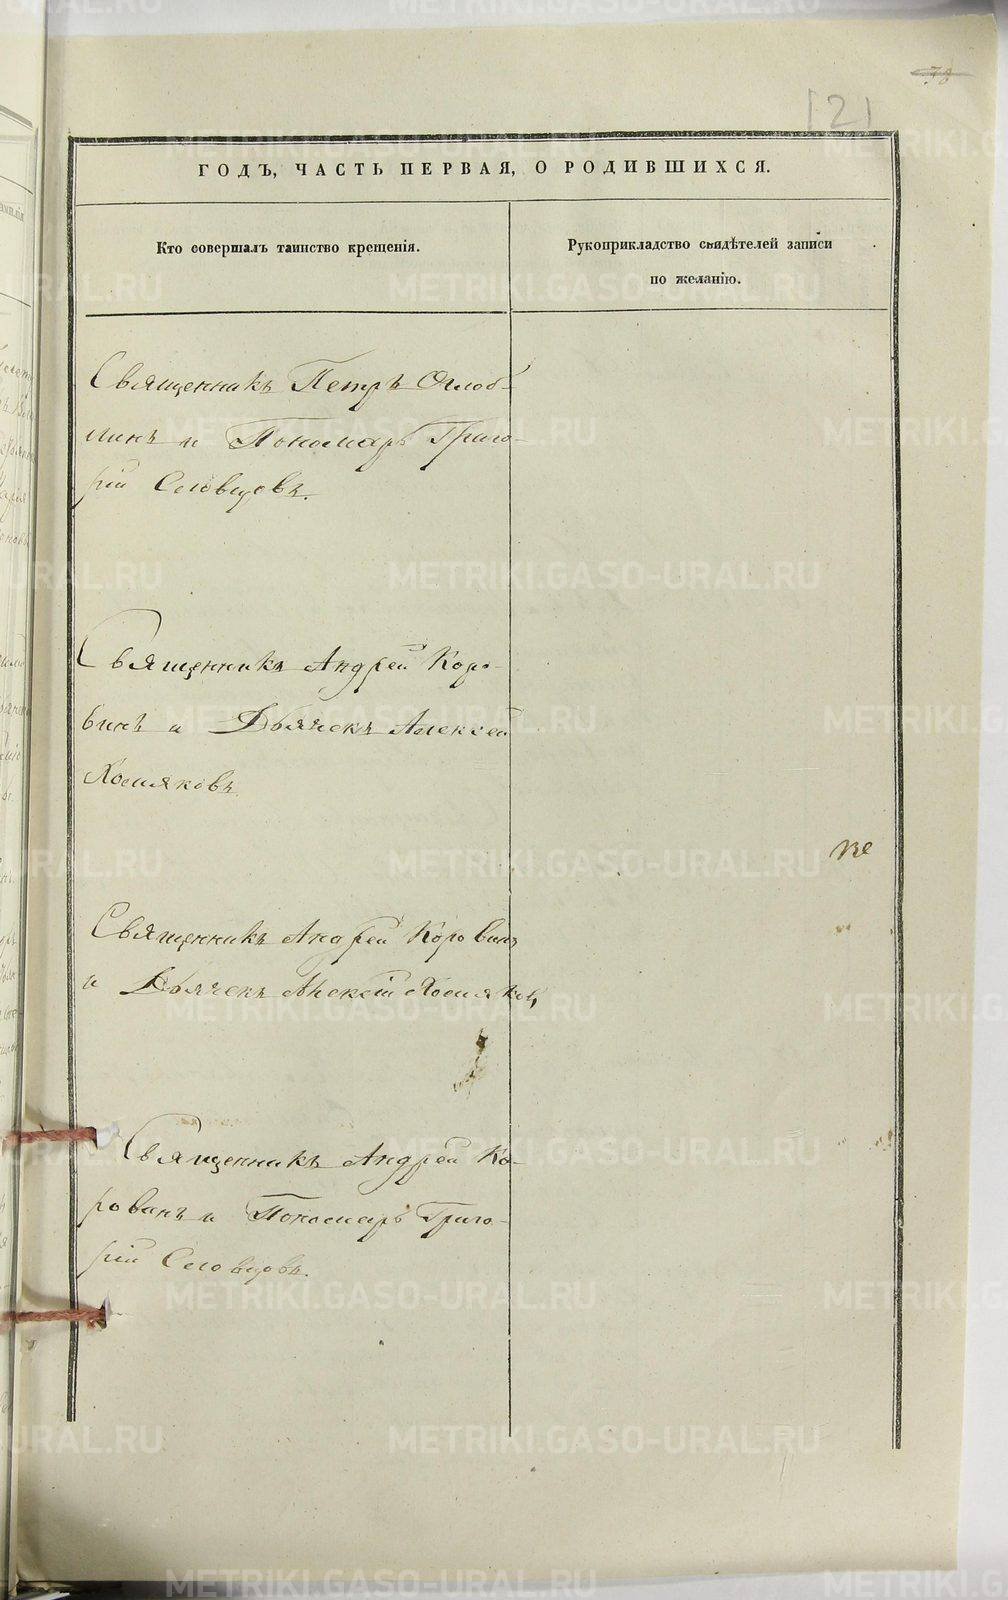 78
121
ГОДЪ, ЧАСТЬ ПЕРВАЯ, О РОДИВШИХСЯ.
Кто совершалъ таинство крещенія.
Рукоприкладство свидѣтелей записи
по желанію.
Священникъ Петръ Оглоб-
линъ и Пономарь Григо-
рій Словцовъ.
Священникъ Андрей Коро-
винъ и Дьячекъ Алексей
Хомяковъ
Священникъ Андрей Коровинъ
и Дьячекъ Алексій Хомяковъ
Священникъ Андрей Ко-
ровинъ и Пономарь Григо-
рій Словцовъ.
METRIKI.GASO-URAL.RU